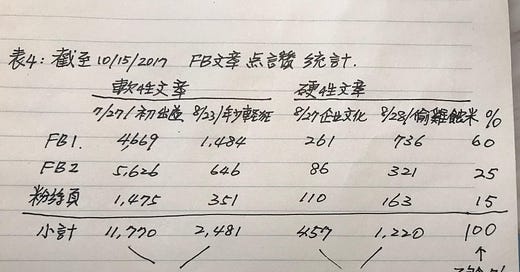 表4: 截至10/15/2017 FB文章点讚統計.
軟性文章 硬性文章
7/27/初出道 8/23/年少輕狂 8/27企业文化 8/28/偷雞蝕米 %
FB1. 4,669 1,484 261 736 60
FB2 5,626 646 86 321 25
粉絲頁 1,475 351 110 163 15
小計 11,770 2,481 457 1,220 100